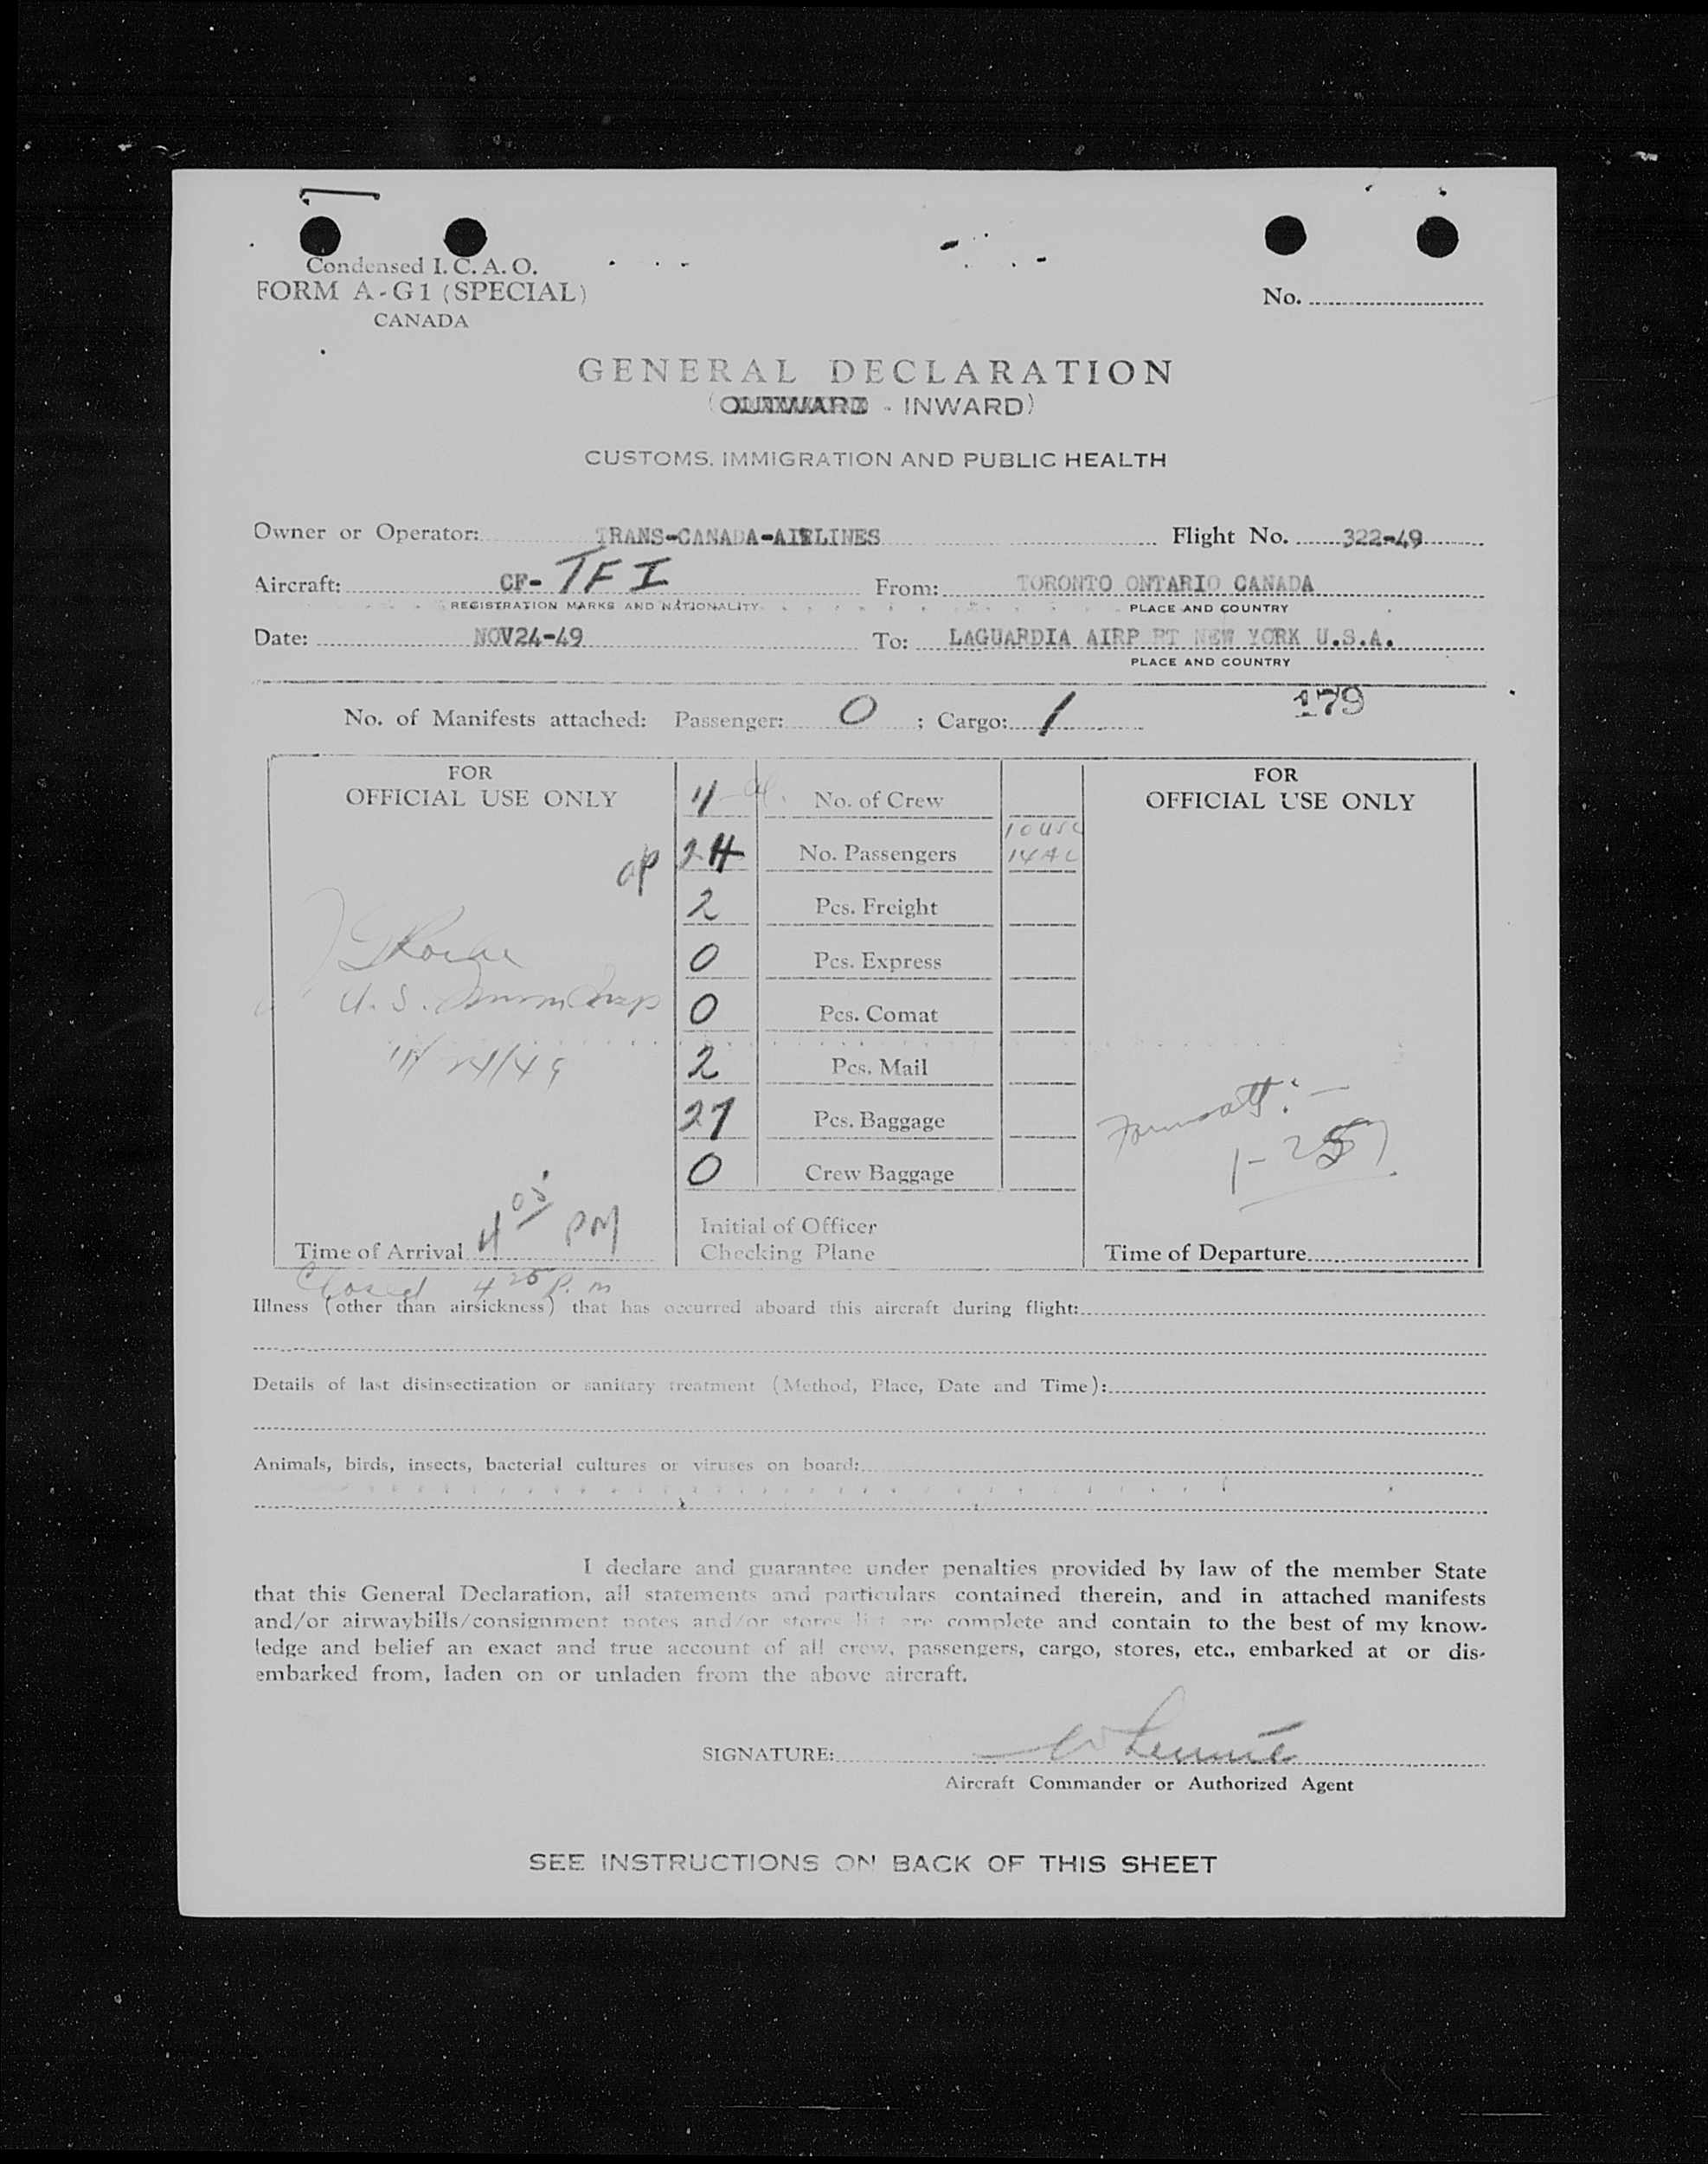 Condensed I. C. A. O.
FORM A-G1 (SPECIAL)
CANADA
No.
GENERAL DECLARATION
(OUTWARD - INWARD)
CUSTOMS, IMMIGRATION AND PUBLIC HEALTH
Owner or Operator: TRANS-CANADA-AIRLINES Flight No. 322-49
Aircraft: CF- TFI From: TORONTO ONTARIO CANADA
REGISTRATION MARKS AND NATIONALITY PLACE AND COUNTRY
Date: NOV24-49 To: LAGUARDIA AIRP RT NEW YORK U.S.A.
PLACE AND COUNTRY
179
No. of Manifests attached: Passenger: 0 ; Cargo: 1
FOR
OFFICIAL USE ONLY
4 No. of Crew
10 USC
24 No. Passengers 14 AC
2 Pcs. Freight
0 Pcs. Express
0 Pcs. Comat
2 Pcs. Mail
27 Pcs. Baggage
0 Crew Baggage
U. S.
11/24/49
Time of Arrival 4 05 PM
Closed 4 25 P.m
Initial of Officer
Checking Plane
FOR
OFFICIAL USE ONLY
1-257
Time of Departure
Illness (other than airsickness) that has occurred aboard this aircraft during flight:
Details of last disinsectization or sanitary treatment (Method, Place, Date and Time):
Animals, birds, insects, bacterial cultures or viruses on board:
I declare and guarantee under penalties provided by law of the member State
that this General Declaration, all statements and particulars contained therein, and in attached manifests
and/or airwaybills/consignment notes and/or stores list are complete and contain to the best of my know-
ledge and belief an exact and true account of all crew, passengers, cargo, stores, etc., embarked at or dis-
embarked from, laden on or unladen from the above aircraft.
SIGNATURE:
Aircraft Commander or Authorized Agent
SEE INSTRUCTIONS ON BACK OF THIS SHEET